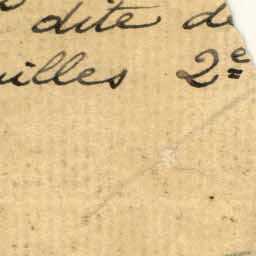 dite de
illes 2e